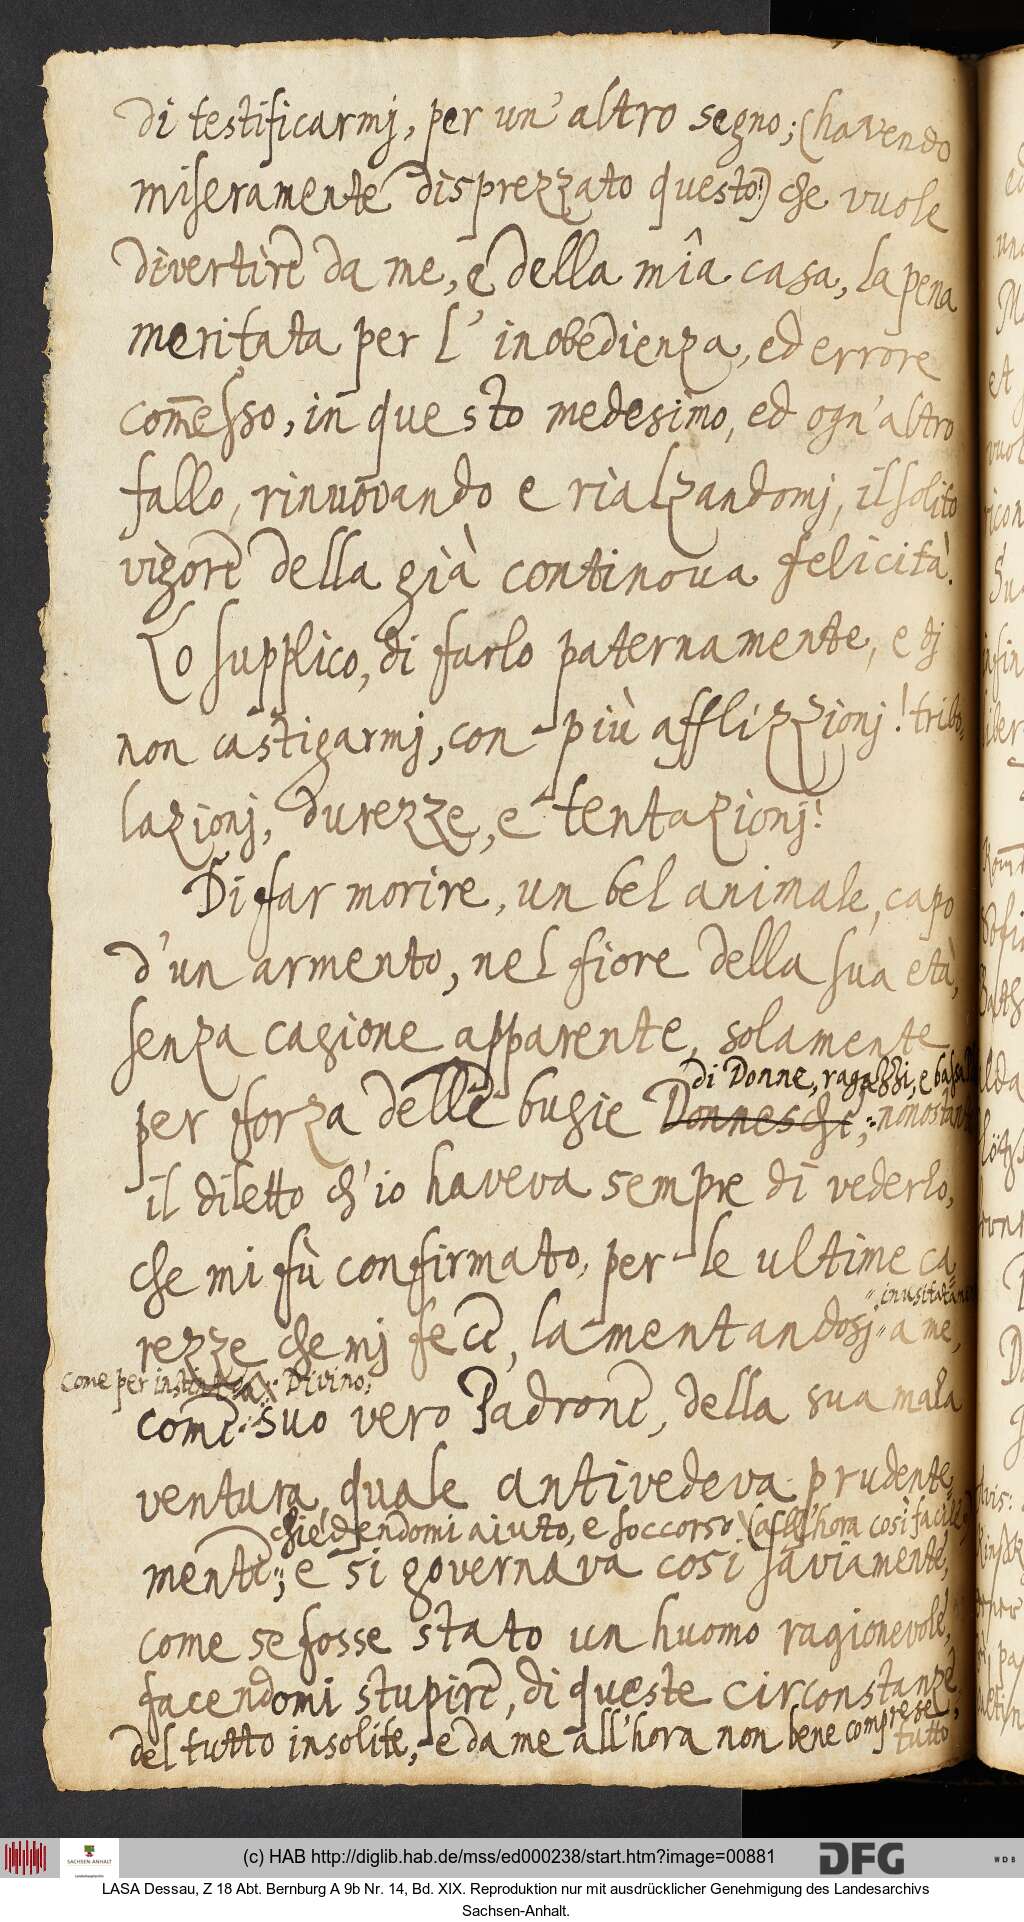 di testificarmj, per un' altro segno; (havendo
miseramente disprezzato questo!) che vuole
divertire da me, e della mîa casa, la pena
meritata per l' inobedienza, ed errore
com̄esso, in questo medesimo, ed ogn' altro
fallo, rinuovando e rialzandomj, il solito
vigore della già continova felicità.
Lo supplico, di farlo paternamente, e dj
non castigarmj, con più afflizzionj! tribo-
lazionj, durezze, e tentazionj!
Di far morire, un bel animale, capo
d'un armento, nel fiore della sua età,
senza cagione apparente, solamente
di Donne, ragazzi, e
per forza delle bugie Donnesche, nonostante
il diletto ch'io haveva sempre di vederlo,
che mi fù confirmato, per le ultime ca-
inusitatamente
rezze che mj fece, lamentandosj a me,
come per instinto Divino;
come suo vero Padrone, della sua mala
ventura, quale antivedeva prudente-
chiedendomi aiuto, e soccorso (all'hora così facile)
mente; e si governava cosi saviamente,
come se fosse stato un huomo ragionevole,
facendomi stupire, di queste circonstanze,
del tutto insolite, e da me all'hora non bene comprese,
tutto
(c) HAB http://diglib.hab.de/mss/ed000238/start.htm?image=00881
DFG
WDB
SACHSEN-ANHALT
LASA Dessau, Z 18 Abt. Bernburg A 9b Nr. 14, Bd. XIX. Reproduktion nur mit ausdrücklicher Genehmigung des Landesarchivs
Sachsen-Anhalt.